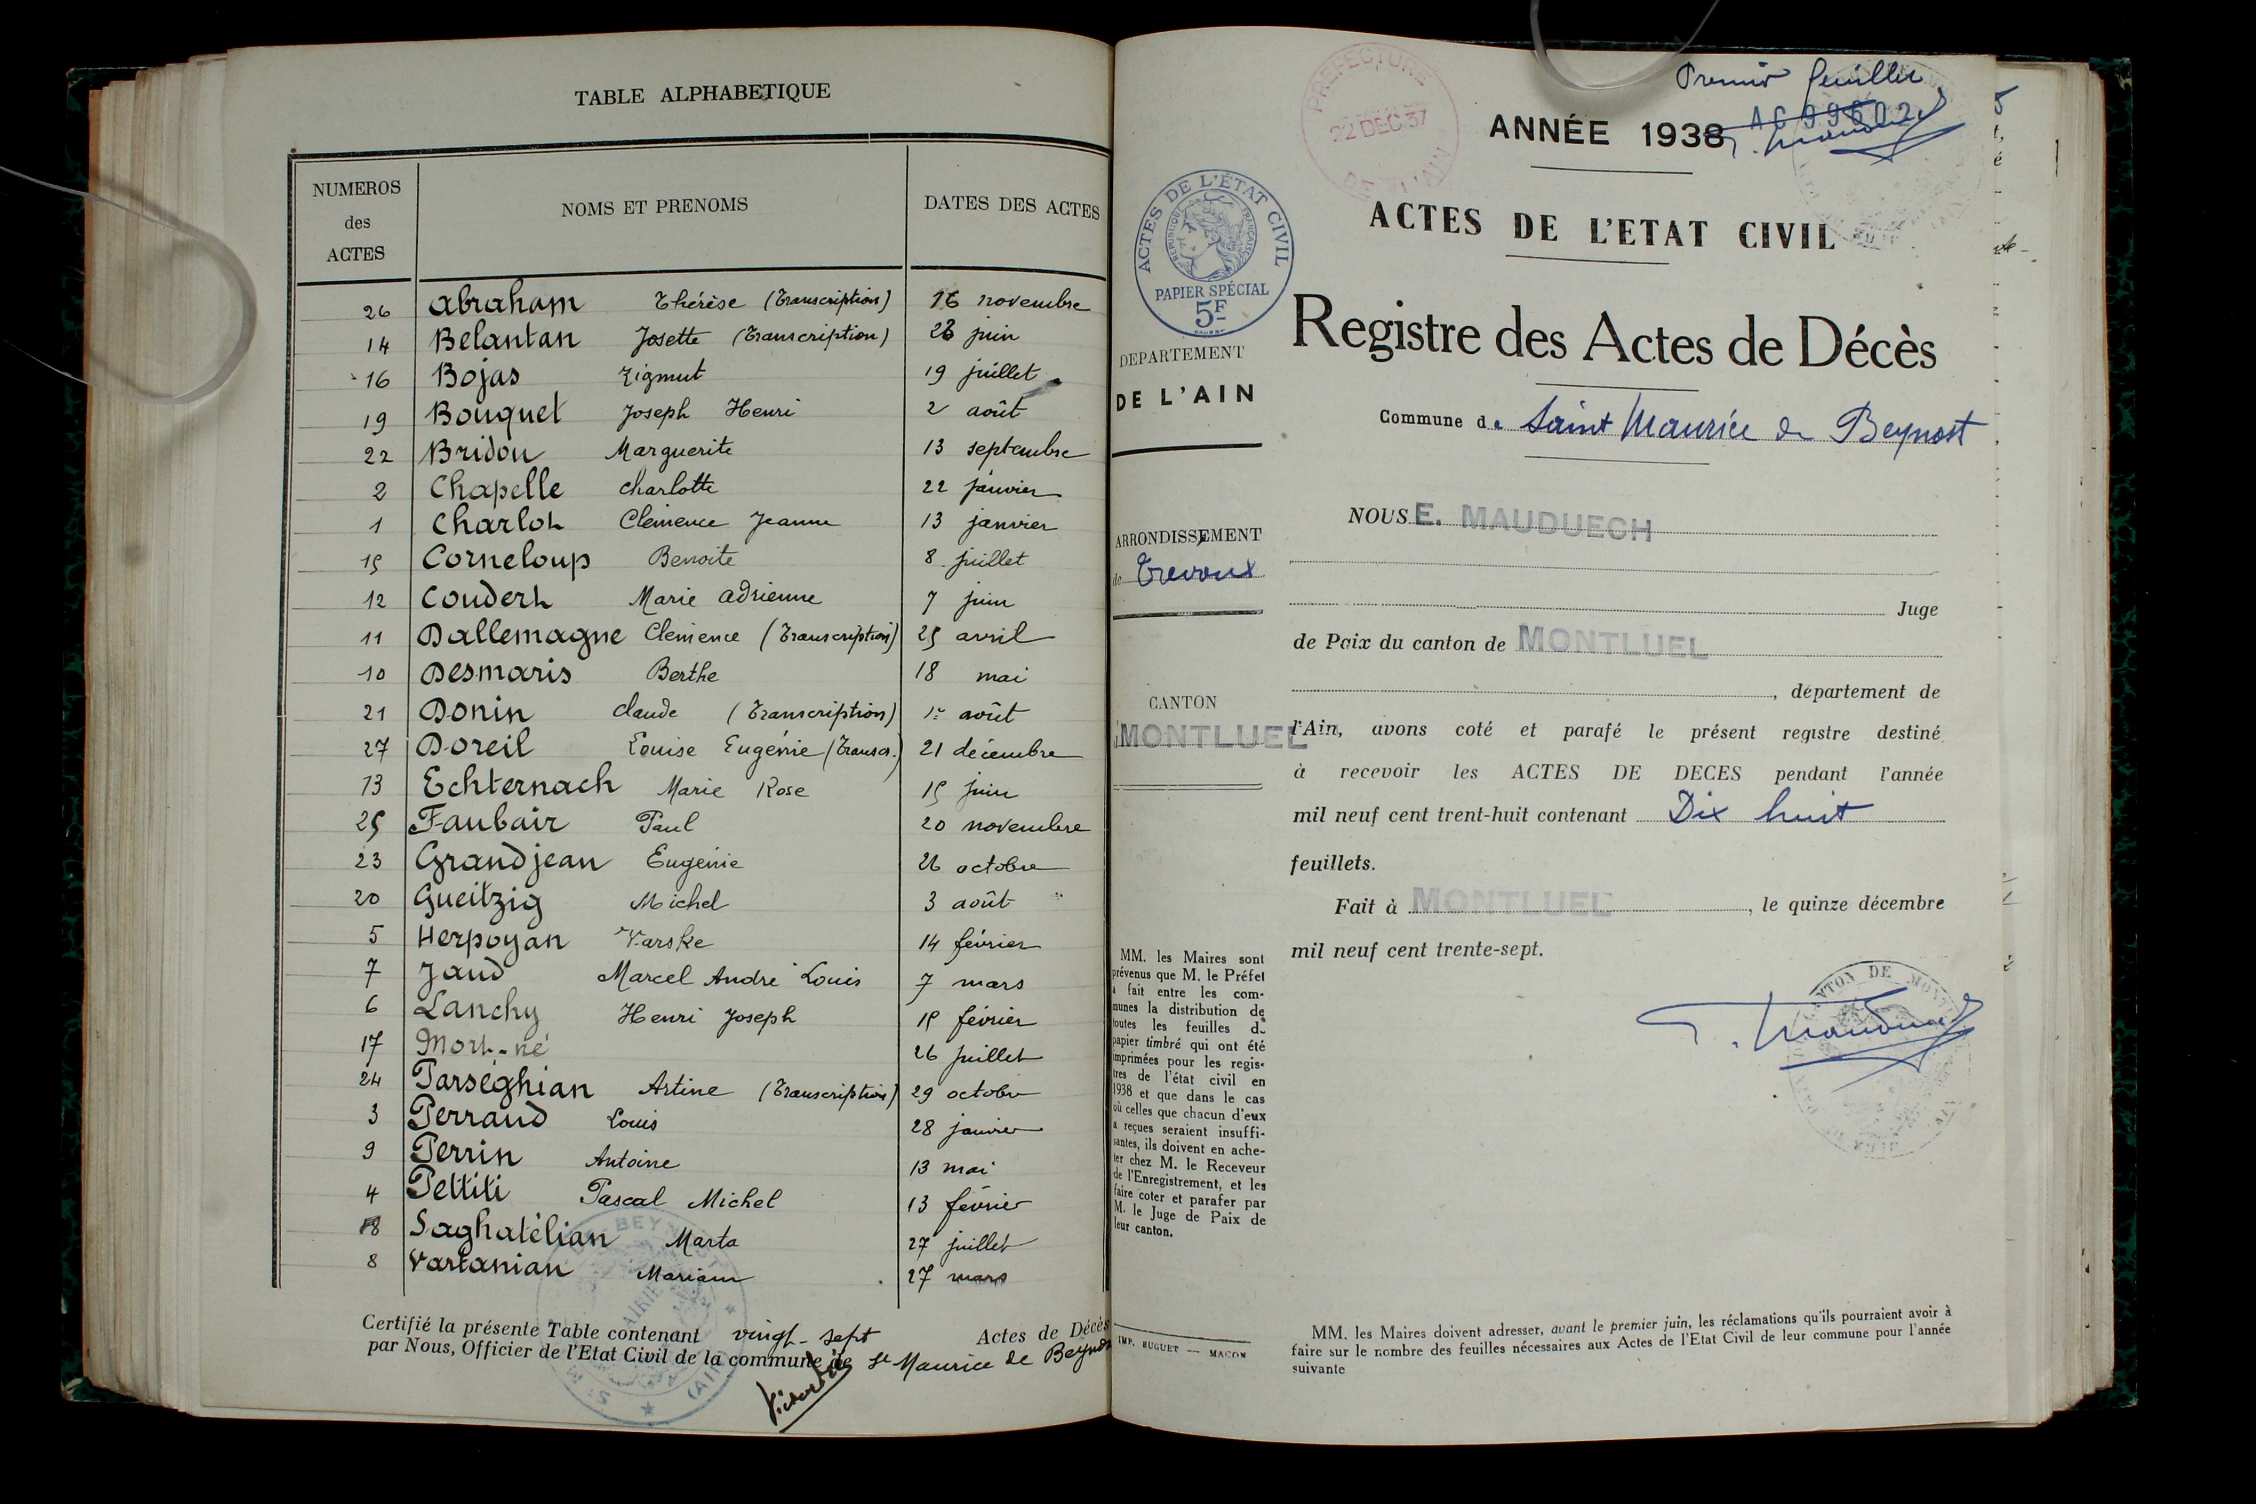 TABLE ALPHABETIQUE
NUMEROS des ACTES
NOMS ET PRENOMS
DATES DES ACTES
26 Abraham Thérèse (Transcription) 16 novembre
14 Belantan Josette (Transcription) 26 juin
16 Bojas Zigmut 19 juillet
19 Bouquet Joseph Henri 2 août
22 Bridon Marguerite 13 septembre
2 Chapelle Charlotte 22 janvier
1 Charlot Clémence Jeanne 13 janvier
15 Corneloup Benoite 8 juillet
12 Coudert Marie Adrienne 7 juin
11 Dallemagne Clémence (Transcription) 25 avril
10 Desmaris Berthe 18 mai
21 Donin Claude (Transcription) 1er août
27 Doreil Louise Eugénie (Transcr.) 21 décembre
13 Echternach Marie Rose 15 juin
25 Faubair Paul 20 novembre
23 Grandjean Eugénie 26 octobre
20 Gueitzig Michel 3 août
5 Herpoyan Varske 14 février
7 Jaud Marcel André Louis 7 mars
6 Lanchy Henri Joseph 15 février
17 Mort-né 26 juillet
24 Parséghian Artine (Transcription) 29 octobre
3 Perraud Louis 28 janvier
9 Perrin Antoine 13 mai
4 Pettiti Pascal Michel 13 février
18 Saghatélian Marta 27 juillet
8 Vartanian Mariam 27 mars
Certifié la présente Table contenant vingt-sept Actes de Décès
par Nous, Officier de l'Etat Civil de la commune de St Maurice de Beynost
PREFECTURE
22 DEC 37
DE L'AIN
Premier feuillet
ANNÉE 1938
ACTES DE L'ÉTAT CIVIL
REPUBLIQUE FRANÇAISE
PAPIER SPÉCIAL
5F
ACTES DE L'ETAT CIVIL
Registre des Actes de Décès
DEPARTEMENT
DE L'AIN
Commune de Saint Maurice de Beynost
ARRONDISSEMENT
de Trevoux
CANTON
MONTLUEL
NOUS E. MAUDUECH
Juge
de Paix du canton de MONTLUEL
, département de
l'Ain, avons coté et parafé le présent registre destiné
à recevoir les ACTES DE DECES pendant l'année
mil neuf cent trent-huit contenant Dix huit
feuillets.
Fait à MONTLUEL, le quinze décembre
mil neuf cent trente-sept.
MM. les Maires sont
prévenus que M. le Préfet
a fait entre les com-
munes la distribution de
toutes les feuilles de
papier timbré qui ont été
imprimées pour les regis-
tres de l'état civil en
1938 et que dans le cas
où celles que chacun d'eux
a reçues seraient insuffi-
santes, ils doivent en ache-
ter chez M. le Receveur
de l'Enregistrement, et les
faire coter et parafer par
M. le Juge de Paix de
leur canton.
IMP. BUGUET — MACON
MM. les Maires doivent adresser, avant le premier juin, les réclamations qu'ils pourraient avoir à
faire sur le nombre des feuilles nécessaires aux Actes de l'Etat Civil de leur commune pour l'année
suivante